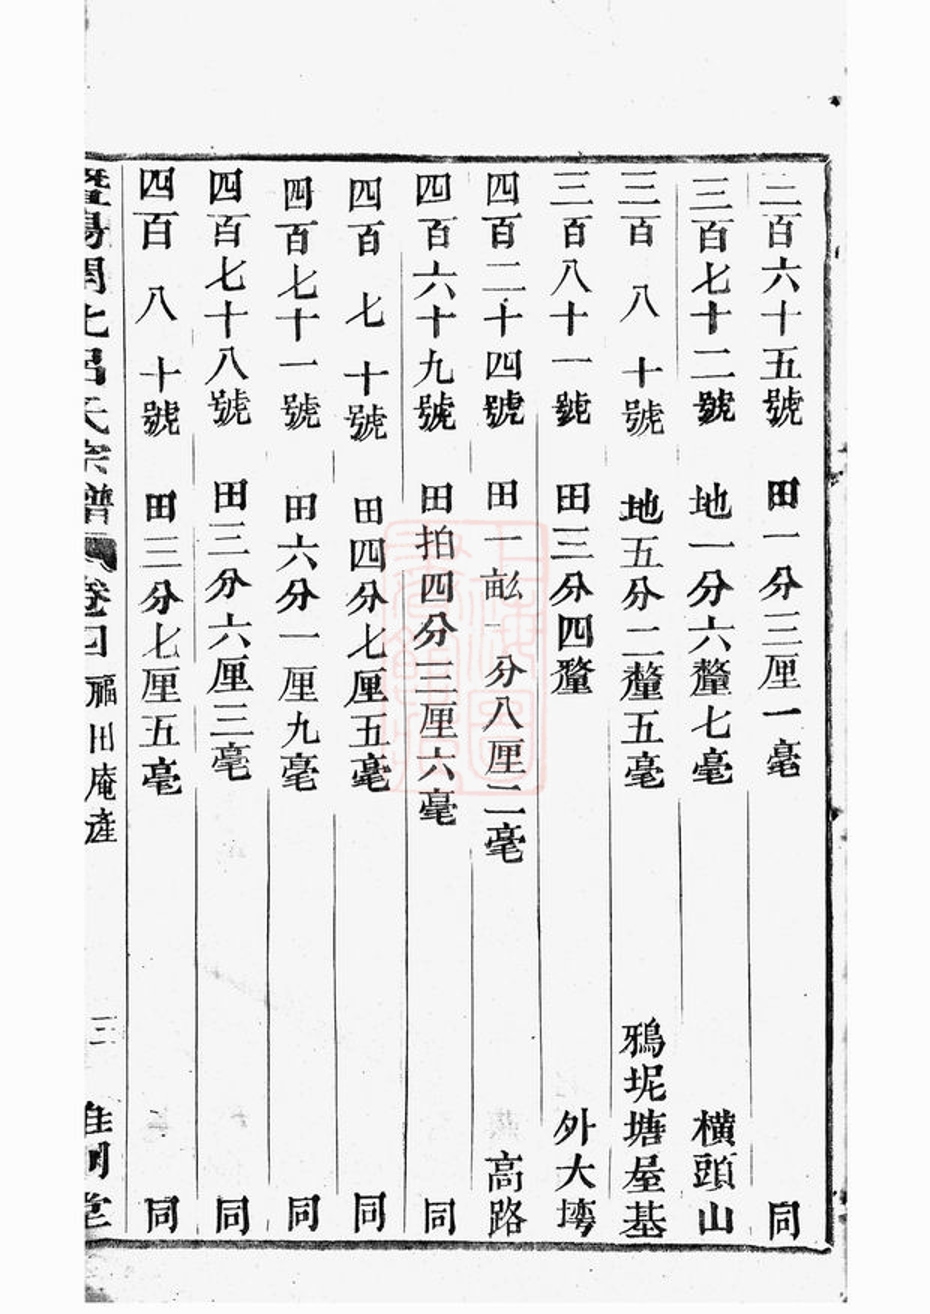 三百六十五號 田一分三厘一毫 同
三百七十二號 地一分六釐七毫 橫頭山
三百八十號 地五分二釐五毫 鴉坭塘屋基
三百八十一號 田三分四釐 外大塆
四百二十四號 田一畝一分八厘二毫 高路
四百六十九號 田拍四分三厘六毫 同
四百七十號 田四分七厘五毫 同
四百七十一號 田六分一厘九毫 同
四百七十八號 田三分六厘三毫 同
四百八十號 田三分七厘五毫 同
暨陽開化呂氏宗譜 卷四 福田庵產 三